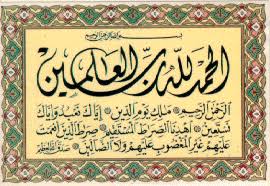 بسم الله الرحمن الرحيم
الحمد لله رب العلمين
الرحمن الرحيم ملك يوم الدين إياك نعبد وإياك
نستعين اهدنا الصرط المستقيم صرط الذين أنعمت
عليهم غير المغضوب عليهم ولا الضالين